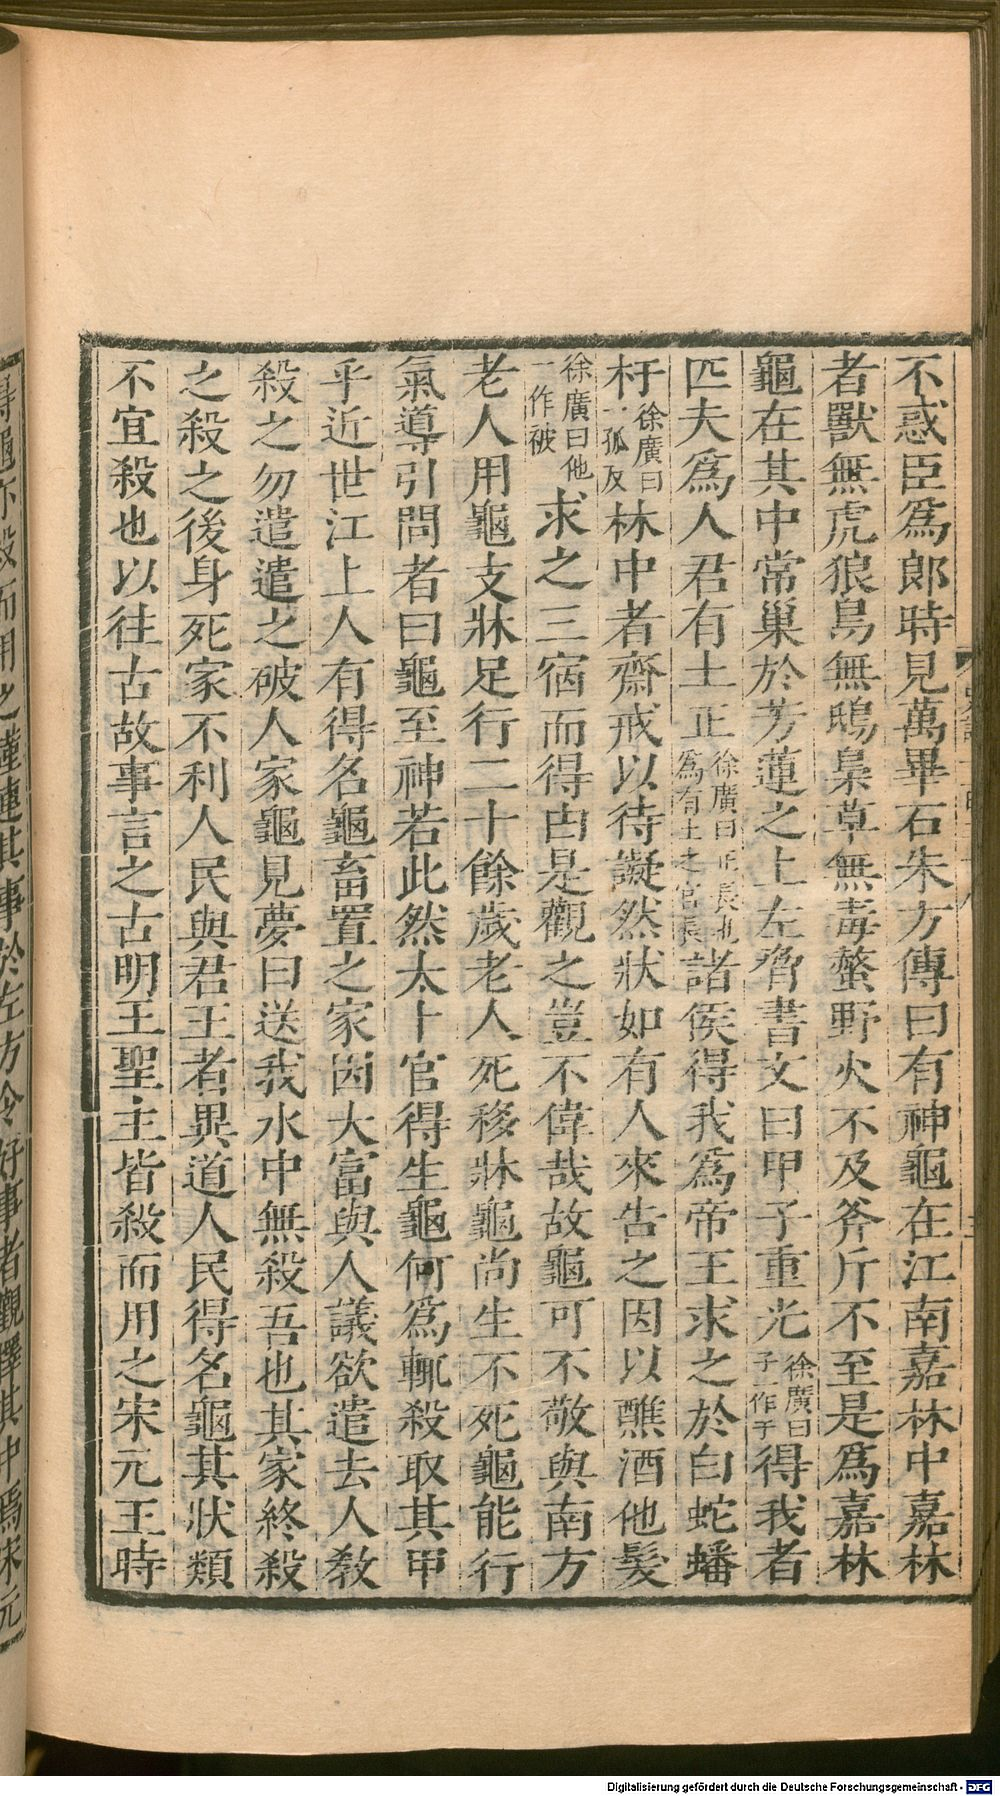 不惑臣爲郎時見萬畢石朱方傳曰有神龜在江南嘉林中嘉林
者獸無虎狼鳥無鴟梟草無毒螫野火不及斧斤不至是爲嘉林
龜在其中常巢於芳蓮之上左脅書文曰甲子重光徐廣曰子一作于得我者
匹夫爲人君有土正徐廣曰正長也爲有土之官長諸侯得我爲帝王求之於白蛇蟠
杅徐廣曰一孤反林中者齋戒以待譺然狀如有人來告之因以醮酒他髮
徐廣曰他一作被求之三宿而得由是觀之豈不偉哉故龜可不敬與南方
老人用龜支牀足行二十餘歲老人死移牀龜尚生不死龜能行
氣導引問者曰龜至神若此然太卜官得生龜何爲輒殺取其甲
乎近世江上人有得名龜畜置之家因大富與人議欲遣去人敎
殺之勿遣遣之破人家龜見夢曰送我水中無殺吾也其家終殺
之殺之後身死家不利人民與君王者異道人民得名龜其狀類
不宜殺也以往古故事言之古明王聖主皆殺而用之宋元王時
得龜亦殺而用之謹連其事於左方令好事者觀擇其中焉宋元
Digitalisierung gefördert durch die Deutsche Forschungsgemeinschaft - DFG